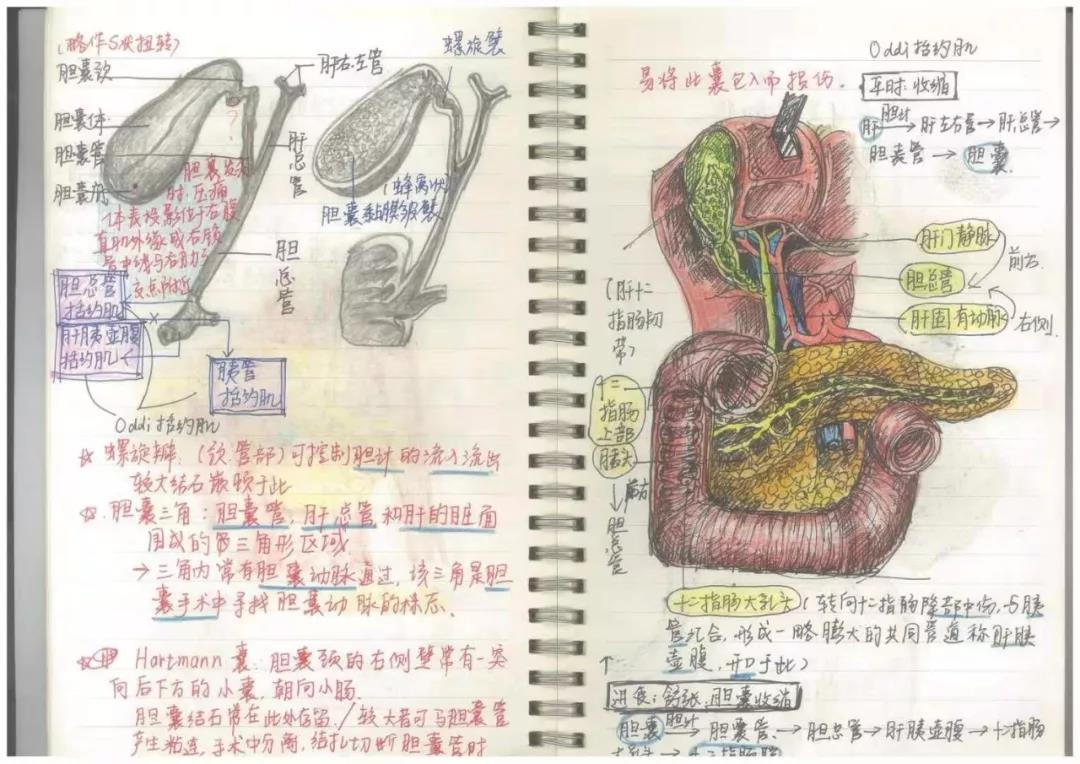 (略作S状扭转)
胆囊颈
胆囊体
胆囊管
胆囊底
肝右左管
肝总管
胆总管
螺旋襞
(蜂窝状)
胆囊黏膜皱襞
胆囊发炎
时,压痛
体表投影位于右腹
直肌外缘或右锁
骨中线与右肋弓
交点附近
胆总管
括约肌
肝胰壶腹
括约肌
胰管
括约肌
Oddi括约肌
☆ 螺旋瓣.(颈.管部)可控制胆汁的流入流出
较大结石嵌顿于此
☆.胆囊三角:胆囊管,肝总管和肝的脏面
围成的三角形区域
→三角内常有胆囊动脉通过,该三角是胆
囊手术中寻找胆囊动脉的标志.
Hartmann囊:胆囊颈的右侧壁常有一突
向后下方的小囊,朝向小肠.
胆囊结石常在此处存留./较大者可与胆囊管
产生粘连,手术中分离,结扎切断胆囊管时
易将此囊包入而损伤.
Oddi括约肌
平时:收缩
肝 胆汁→肝左右管→肝总管→
胆囊管→胆囊
肝门静脉
前方.
胆总管
肝固有动脉
右侧
(肝十二指肠韧带)
十二指肠上部
胰头
前方
胆总管
十二指肠大乳头(转向十二指肠降部中份,与胰
管汇合,形成一略膨大的共同管道称肝胰
壶腹,开口于此)
↑
进食:舒张.胆囊收缩
胆囊 胆汁→胆囊管→胆总管→肝胰壶腹→十二指肠
大乳头→十二指肠腔